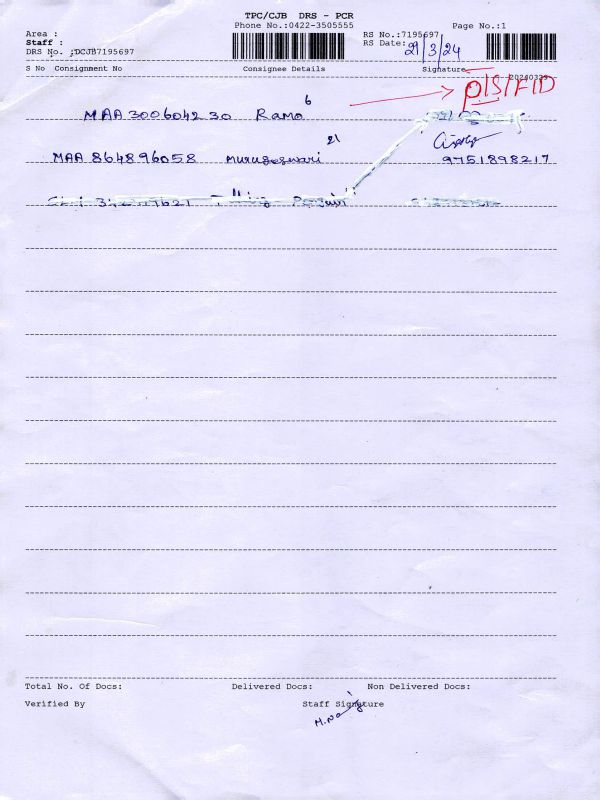 TPC/CJB DRS - PCR
Phone No.:0422-3505555
Page No.:1
Area :
RS No.:7195697
Staff :
RS Date: 21/3/24
DRS No. :DCJB7195697
S No Consignment No Consignee Details Signature
20240329
MAA300604230 Ramo 6
P/S/FID
MAA 864896058 murugeswari 21
9751898217
Total No. Of Docs: Delivered Docs: Non Delivered Docs:
Verified By Staff Signature